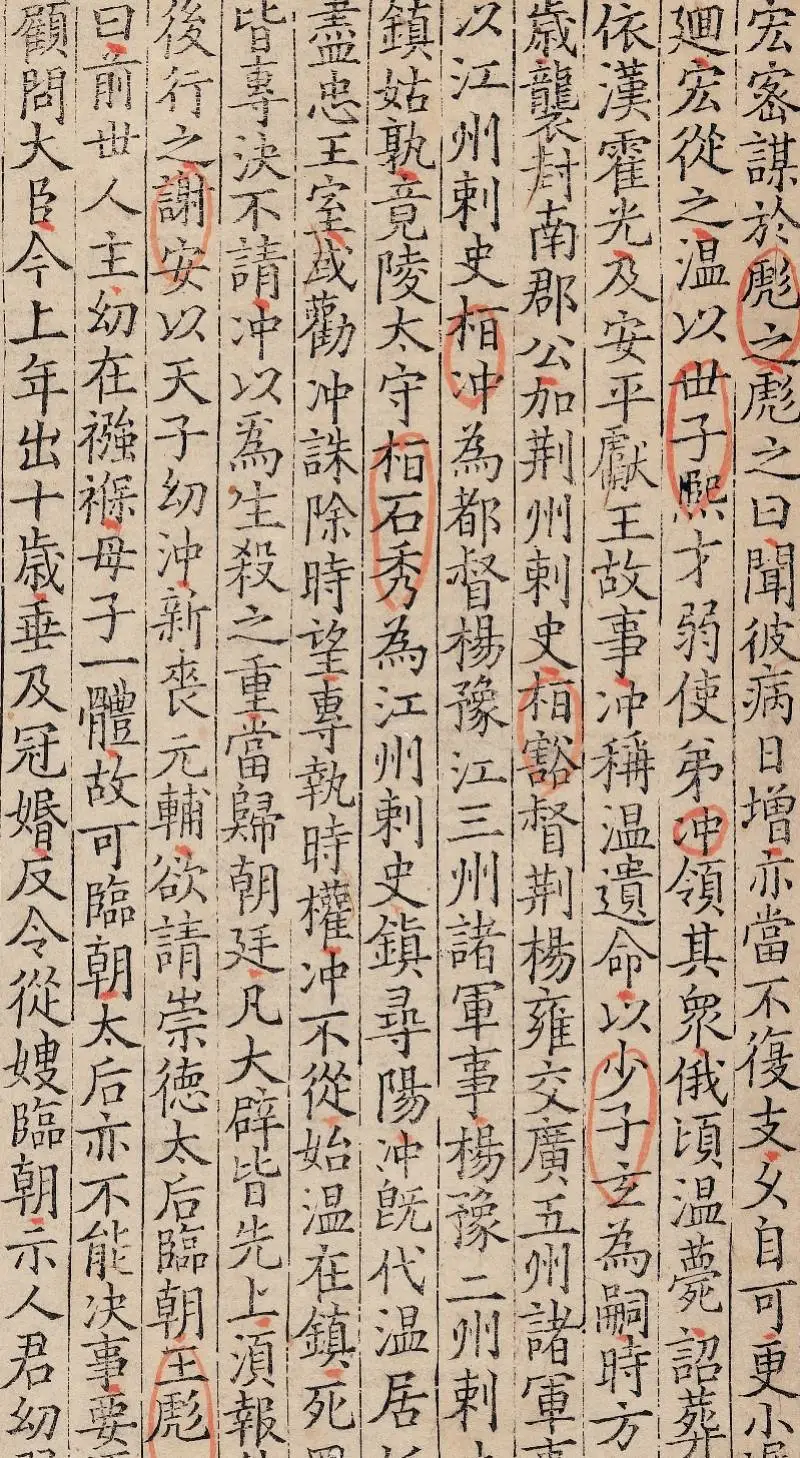 宏密謀於彪之彪之曰聞彼病日增亦當不復支乆自可更小
廻宏從之温以世子熙才弱使弟冲領其衆俄頃温薨詔葬
依漢霍光及安平獻王故事冲稱温遺命以少子玄為嗣時方
歳襲封南郡公加荆州刺史桓豁督荆楊雍交廣五州諸軍事
以江州刺史桓冲為都督楊豫江三州諸軍事楊豫二州刺
鎮姑孰竟陵太守桓石秀為江州刺史鎮尋陽冲既代温居
盡忠王室或勸冲誅除時望專執時權冲不從始温在鎮死
皆專決不請冲以為生殺之重當歸朝廷凡大辟皆先上須報
後行之謝安以天子幼沖新喪元輔欲請崇徳太后臨朝王彪
曰前世人主幼在襁褓母子一體故可臨朝太后亦不能决事要
顧問大臣今上年出十歳垂及冠婚反令從嫂臨朝示人君幼